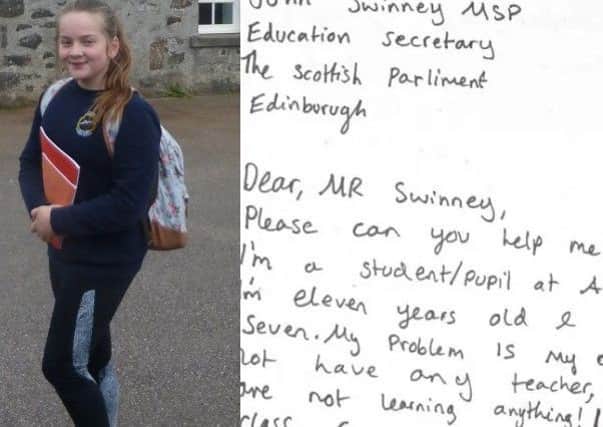 John Swinney MSP
Education secretary
The Scottish Parliment
Edinborugh
Dear, MR Swinney,
Please can you help me
I'm a student/pupil at A
I'm eleven years old &
Seven. My Problem is my
not have any teacher,
are not learning anything!!
class